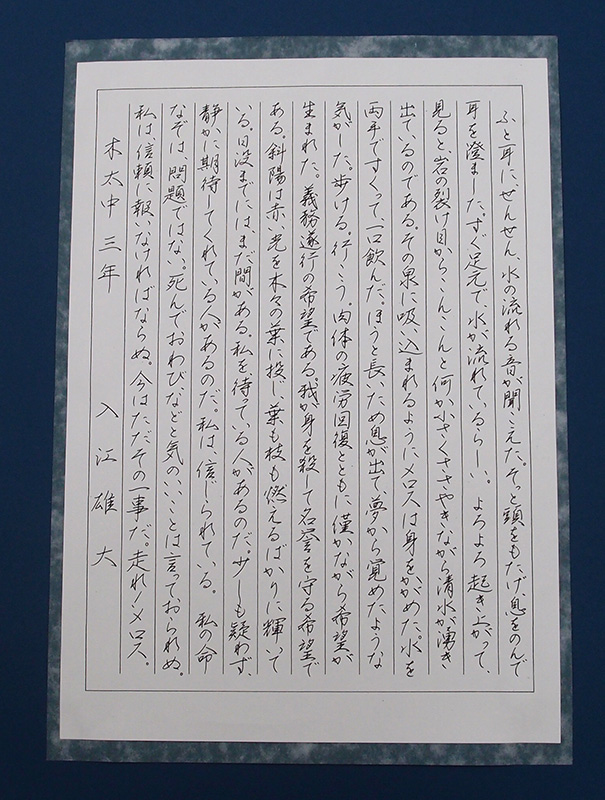 ふと耳に、せんせん、水の流れる音が聞こえた。そっと頭をもたげ、息をのんで
耳を澄ました。すぐ足元で、水が流れているらしい。よろよろ起き上がって、
見ると、岩の裂け目からこんこんと、何か小さくささやきながら清水が湧き
出ているのである。その泉に吸い込まれるようにメロスは身をかがめた。水を
両手ですくって、一口飲んだ。ほうと長いため息が出て、夢から覚めたような
気がした。歩ける。行こう。肉体の疲労回復とともに、僅かながら希望が
生まれた。義務遂行の希望である。我が身を殺して、名誉を守る希望で
ある。斜陽は赤い光を木々の葉に投じ、葉も枝も燃えるばかりに輝いて
いる。日没までには、まだ間がある。私を待っている人があるのだ。少しも疑わず、
静かに期待してくれている人があるのだ。私は、信じられている。私の命
なぞは、問題ではない。死んでおわび、などと気のいいことは言っておられぬ。
私は、信頼に報いなければならぬ。今はただその一事だ。走れ！メロス。
木太中 三年 入江雄大